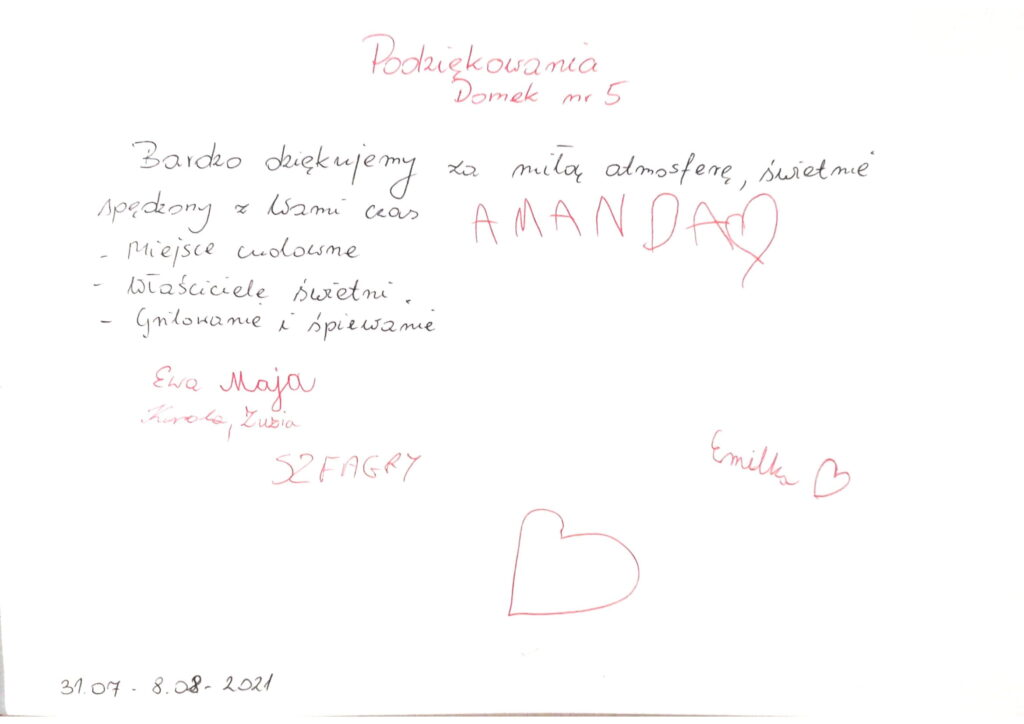 Podziękowania
Domek nr 5
Bardzo dziękujemy za miłą atmosferę, świetnie
spędzony z Wami czas
AMANDA
- Miejsce cudowne
- Właściciele świetni.
- Grilowanie i śpiewanie
Ewa Maja
Karola, Zuzia
SZFAGRY
Emilka
31.07 - 8.08 - 2021